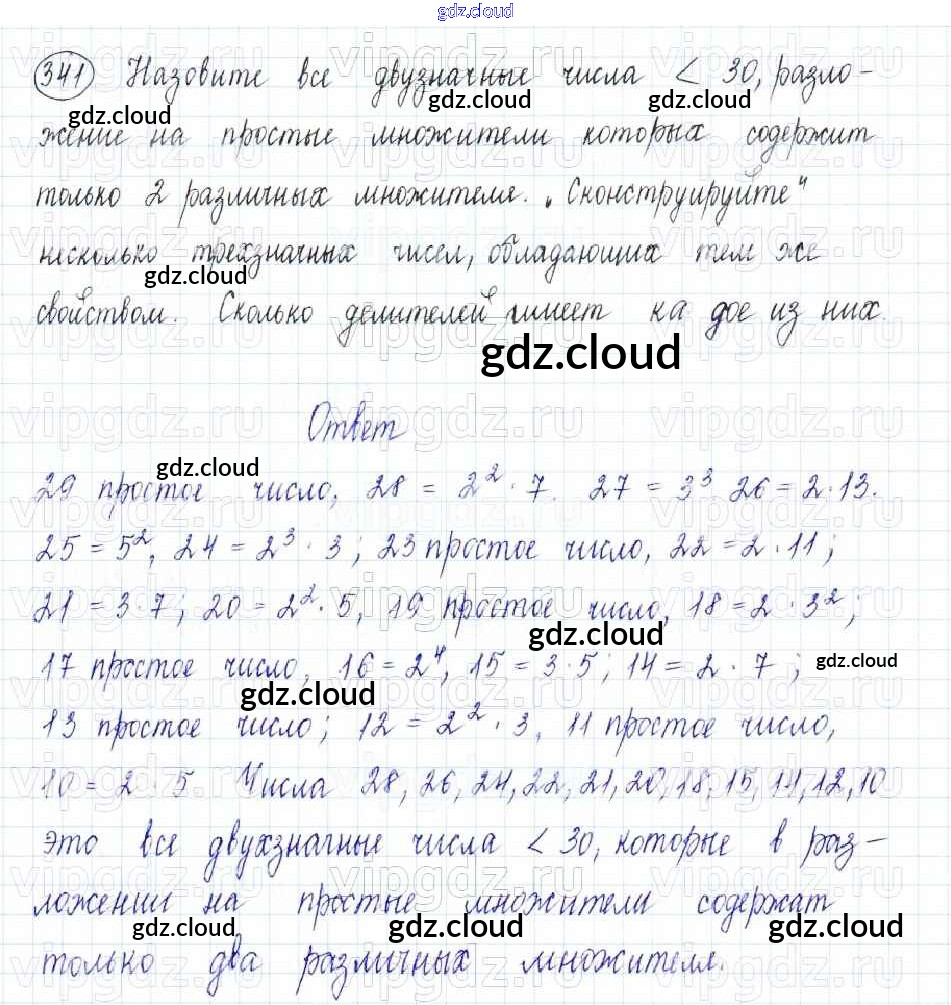 gdz.cloud
341 Назовите все двузначные числа < 30, разло-
жение на простые множители которых содержит
только 2 различных множителя. „Сконструируйте"
несколько трехзначных чисел, обладающих тем же
свойством. Сколько делителей имеет ка дое из них.
gdz.cloud
Ответ
29 простое число, 28 = 2² · 7. 27 = 3³ 26 = 2·13.
25 = 5², 24 = 2³ · 3; 23 простое число, 22 = 2·11;
21 = 3·7; 20 = 2²·5, 19 простое число, 18 = 2·3²;
17 простое число, 16 = 2⁴, 15 = 3·5; 14 = 2·7;
13 простое число; 12 = 2² · 3, 11 простое число,
10 = 2 5 Числа 28, 26, 24, 22, 21, 20, 18, 15, 14, 12, 10
это все двухзначные числа < 30, которые в раз-
ложении на простые множители содержат
только два различных множителя.